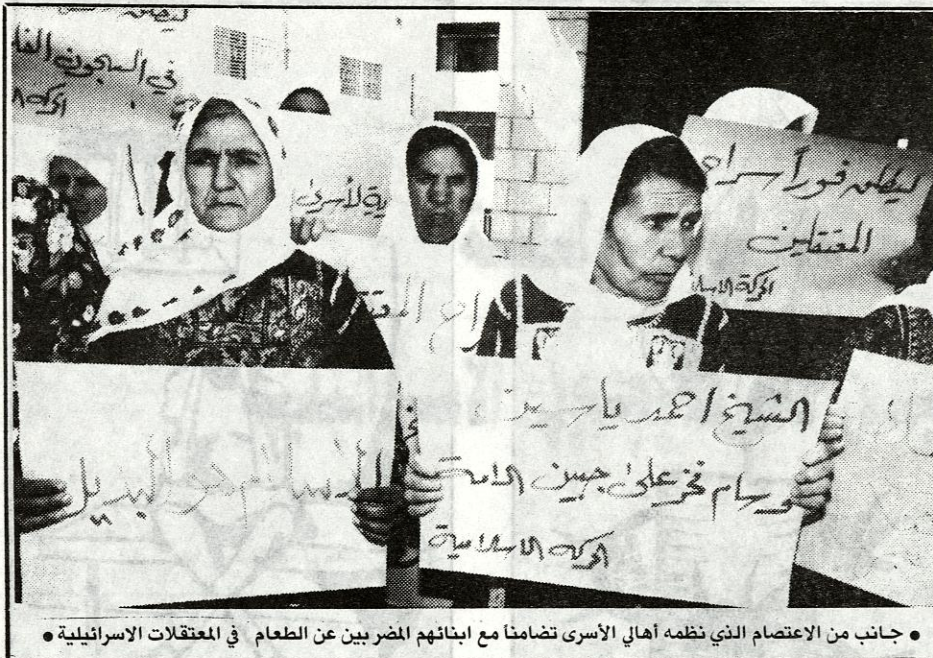 في السجون
الحركة
ليطلق فوراً سراح
المعتقلين
الحركة الاسلا
ية لأسرى
اح المعتق
الشيخ احمد ياسين
وسام فخر على جبين الامة
الحركة الاسلامية
الاسلام هو البديل
• جانب من الاعتصام الذي نظمه أهالي الأسرى تضامناً مع ابنائهم المضربين عن الطعام في المعتقلات الاسرائيلية •